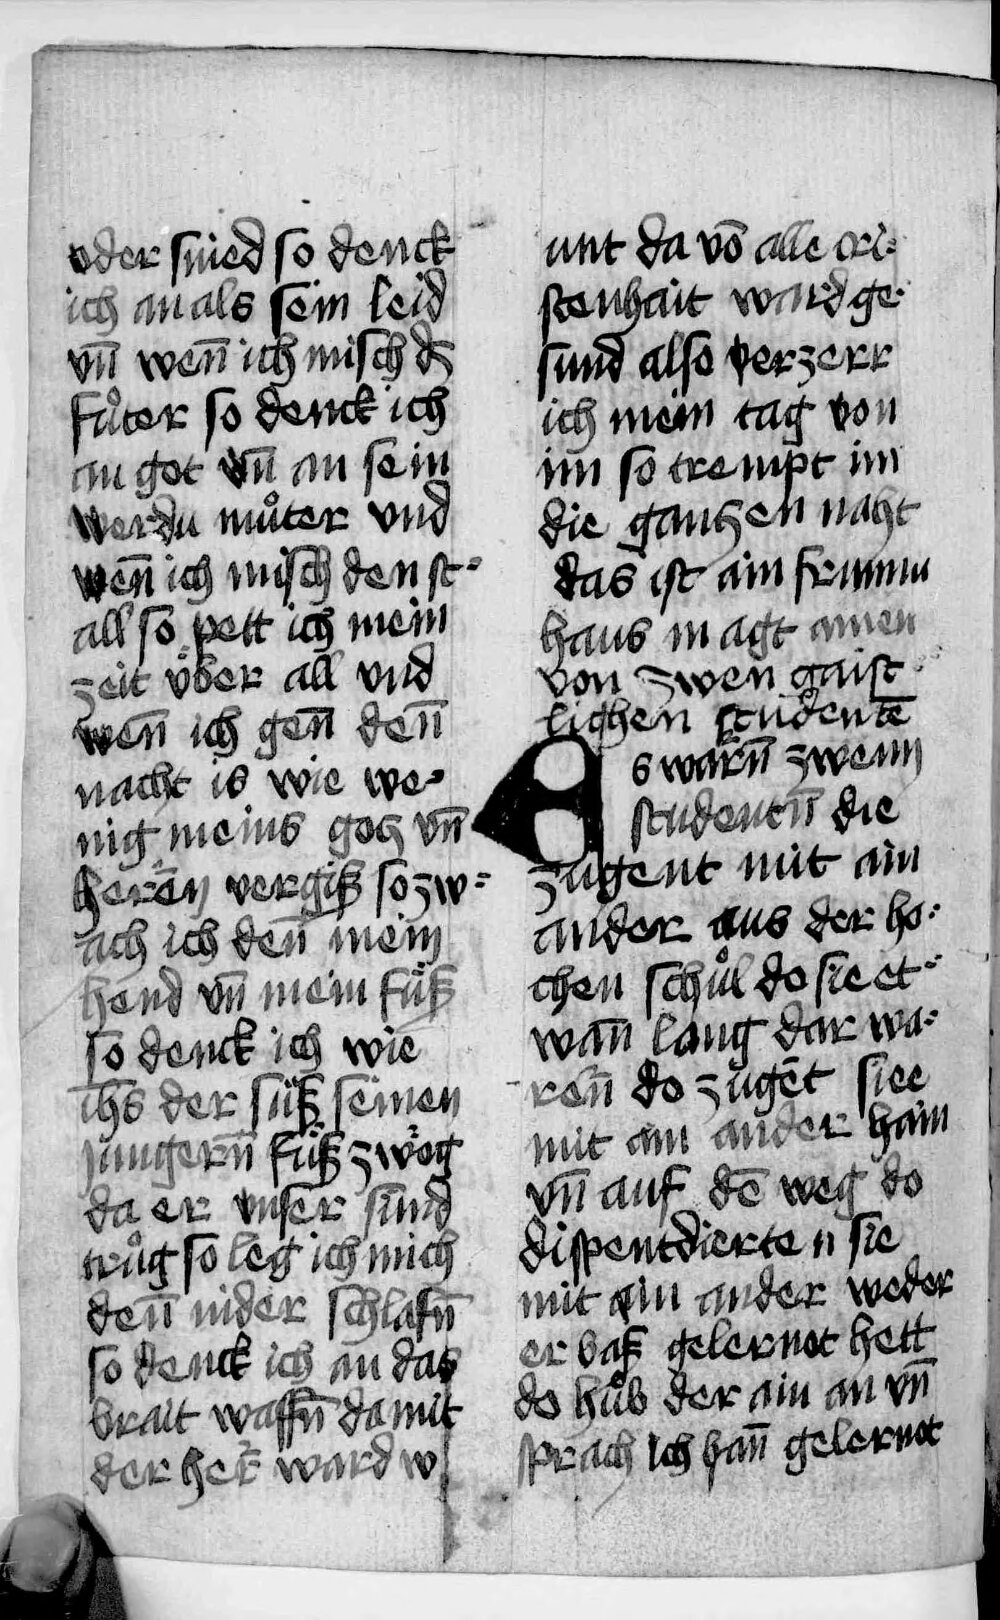 oder snied so denck
ich an als sein leid
vn̄ wen̄ ich misch dz
fůter so denck ich
an got vn̄ an sein
werdn můter vnd
wen̄ ich misch den st⸗
all so pett ich mein
zeit v̊ber all vnd
wen̄ ich gen̄ den̄
nacht is wie we⸗
nig meins gocz vn̄
heren̄ vergiß so zw⸗
ach ich den̄ mein
hend vn̄ mein fu̇ß
so denck ich wie
ihs der su̇ß seinen
jungern̄ fu̇ß zwög
da er vnser sund
trůg so leg ich mich
den̄ nider schlafn̄
so denck ich an das
brait waffn̄ damit
der her ward w
unt da vō alle cri⸗
stenhait ward ge⸗
sund also verzerr
ich mein tag von
im so trempt im
die ganczen naht
das ist ain frumm
haus magt amen
von zwen gaist⸗
lichen studentē
Es warn̄ zwenn
studentn̄ die
zugent mit ain
ander aus der ho⸗
chen schůl do sie et⸗
wan̄ lang dar wa⸗
ren̄ do zugēt siee
mit ain ander hain
vn̄ auf dē weg do
dispentdierten sie
mit ain ander weder
er baß gelernot hett
do hůb der ain an vn̄
sprach ich han̄ gelernot